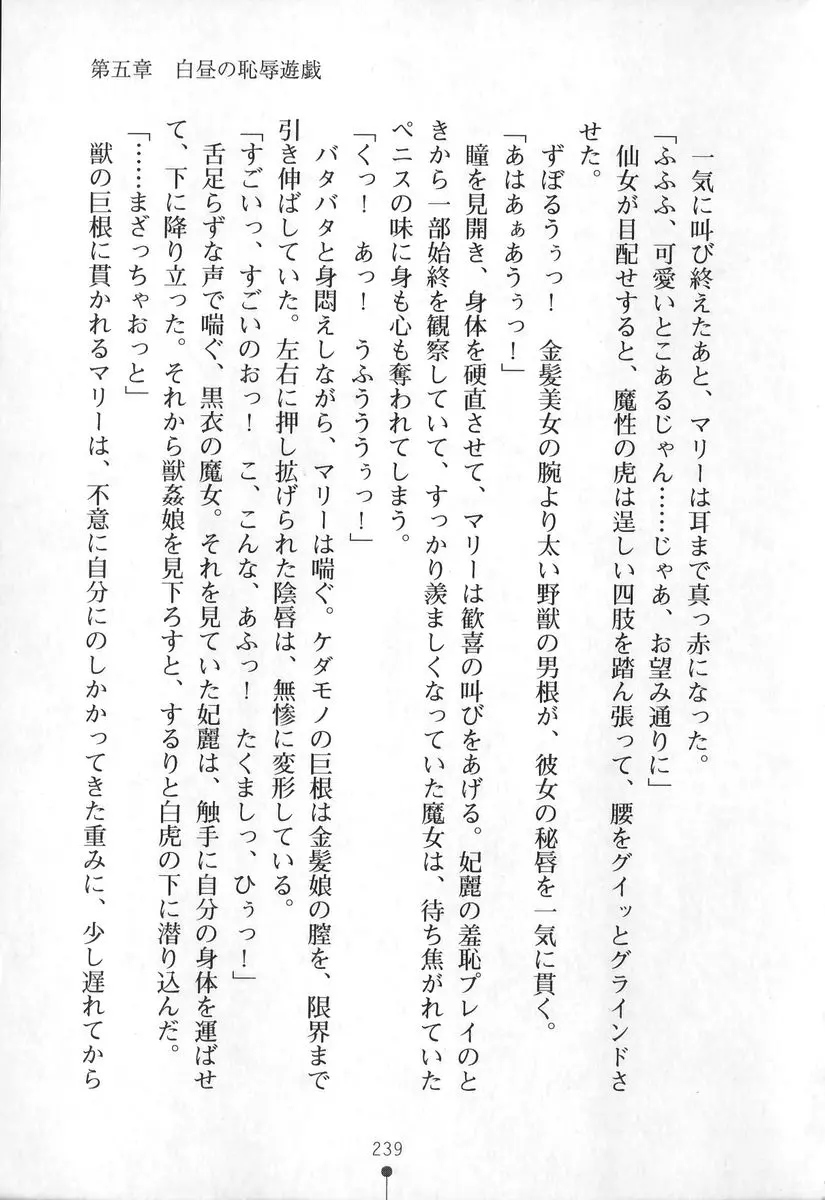 第五章　白昼の恥辱遊戯
　一気に叫び終えたあと、マリーは耳まで真っ赤になった。
「ふふふ、可愛いとこあるじゃん……じゃあ、お望み通りに」
　仙女が目配せすると、魔性の虎は逞しい四肢を踏ん張って、腰をグイッとグラインドさ
せた。
　ずぼるうぅっ！　金髪美女の腕より太い野獣の男根が、彼女の秘唇を一気に貫く。
「あはあぁあうぅっ！」
　瞳を見開き、身体を硬直させて、マリーは歓喜の叫びをあげる。妃麗の羞恥プレイのと
きから一部始終を観察していて、すっかり羨ましくなっていた魔女は、待ち焦がれていた
ペニスの味に身も心も奪われてしまう。
「くっ！　あっ！　うふうううぅっ！」
　バタバタと身悶えしながら、マリーは喘ぐ。ケダモノの巨根は金髪娘の膣を、限界まで
引き伸ばしていた。左右に押し拡げられた陰唇は、無惨に変形している。
「すごいっ、すごいのおっ！　こ、こんな、あふっ！　たくましっ、ひぅっ！」
　舌足らずな声で喘ぐ、黒衣の魔女。それを見ていた妃麗は、触手に自分の身体を運ばせ
て、下に降り立った。それから獣姦娘を見下ろすと、するりと白虎の下に潜り込んだ。
「……まざっちゃおっと」
　獣の巨根に貫かれるマリーは、不意に自分にのしかかってきた重みに、少し遅れてから
239